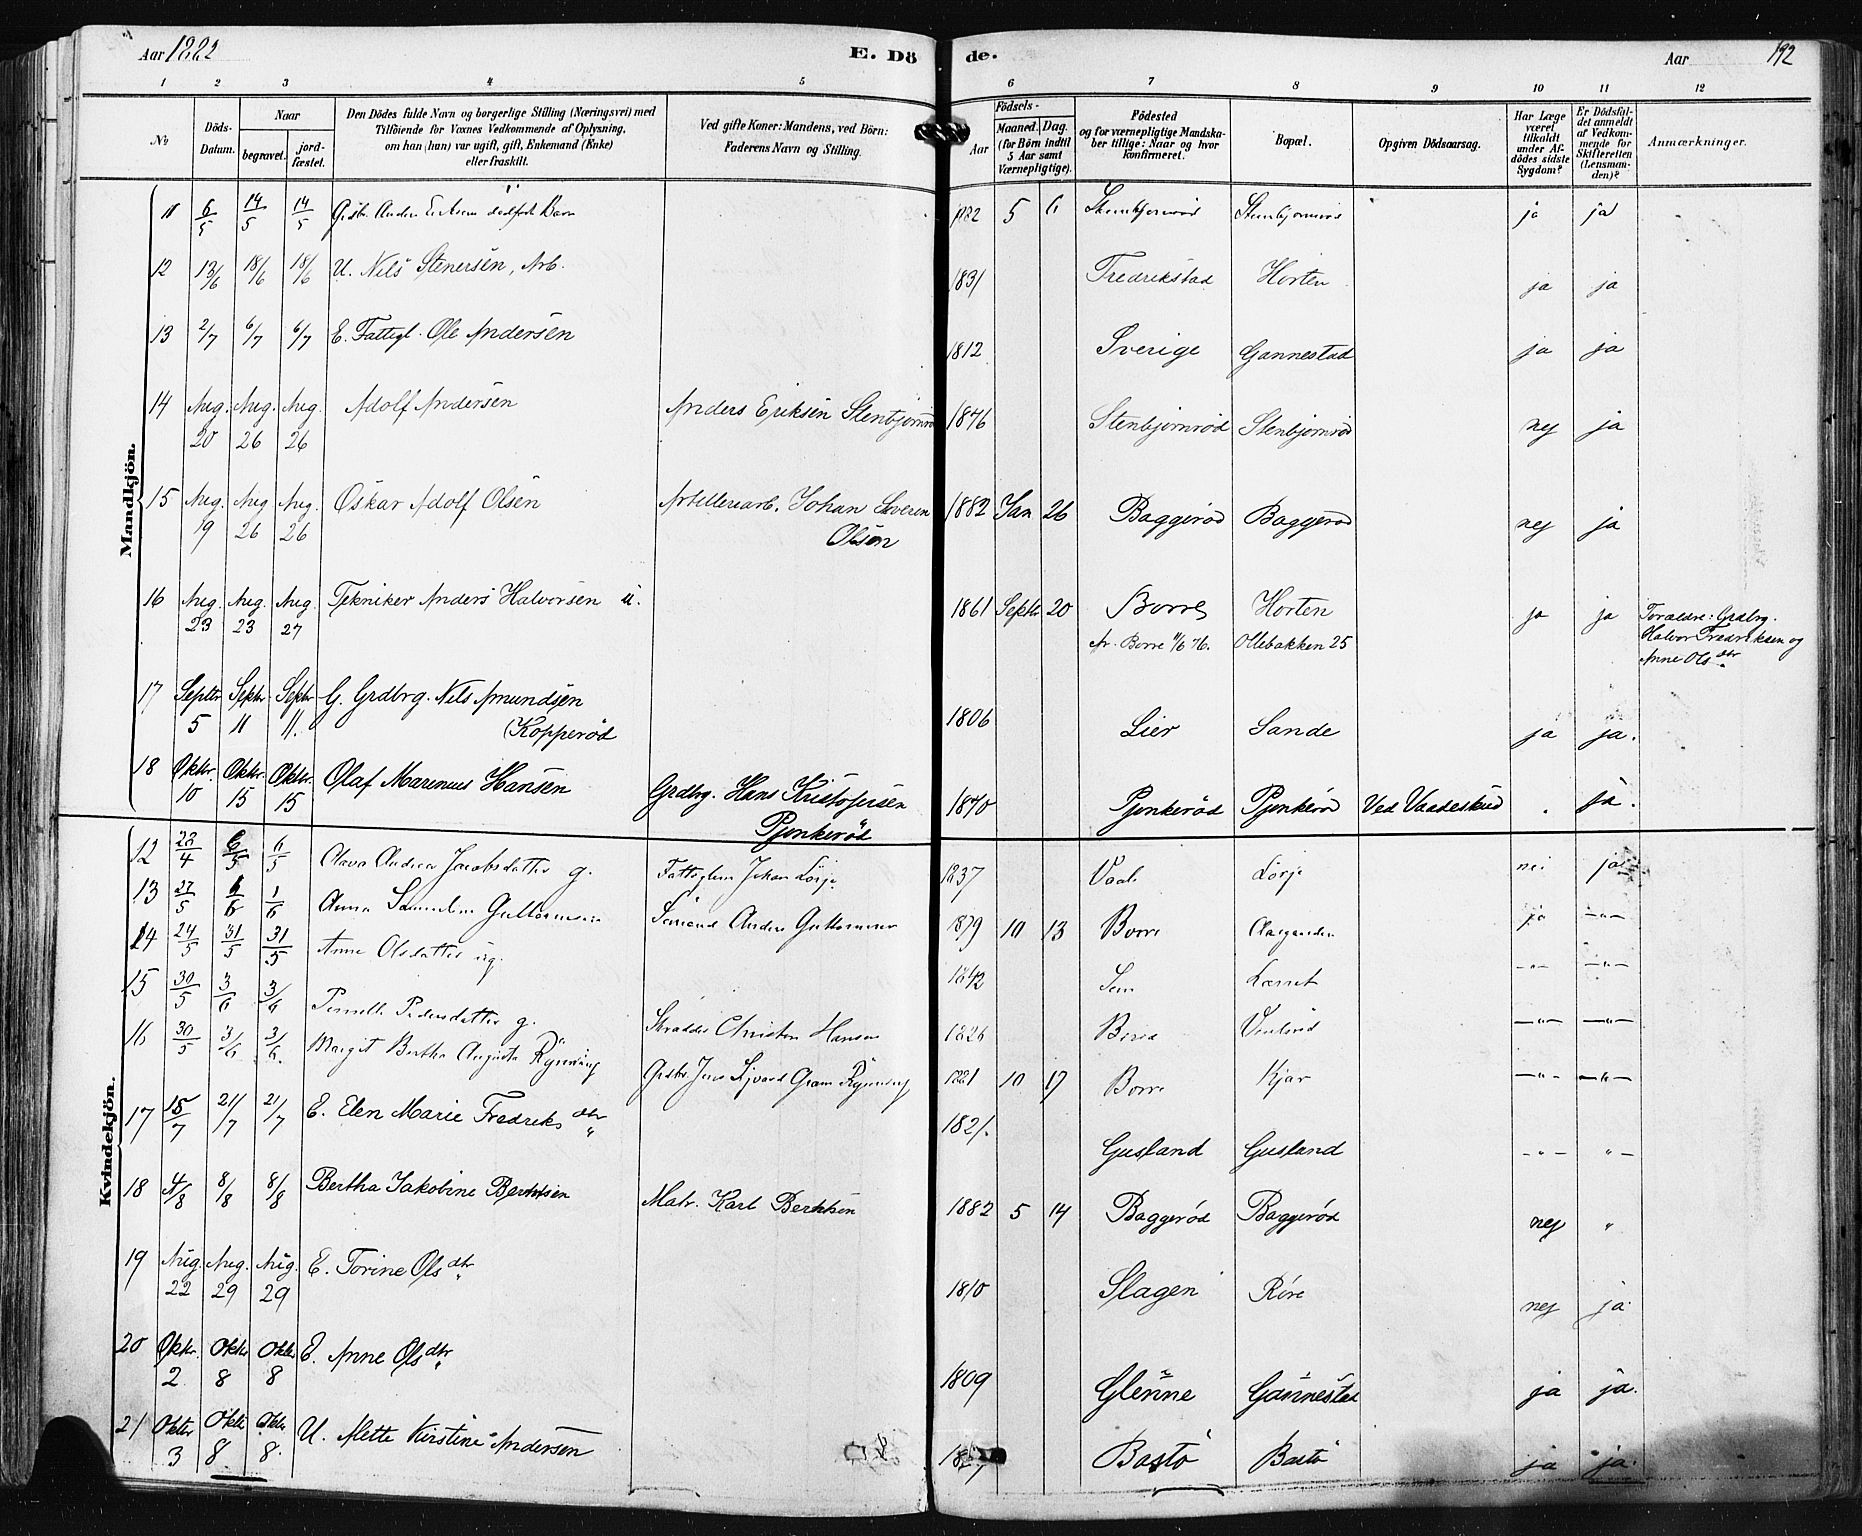 Aar 1882 E. Dö de. Aar 192
1 2 3 4 5 6 7 8 9 10 11 12
No
Döds-Datum.
Naar
begravet.
jordfæstet.
Den Dödes fulde Navn og borgerlige Stilling (Næringsvei) med
Tilföiende for Voxnes Vedkommende af Oplysning,
om han (hun) var ugift, gift, Enkemand (Enke)
eller fraskilt.
Ved gifte Koner: Mandens, ved Börn:
Faderens Navn og Stilling.
Födsels-
Aar
Maaned. Dag.
(for Börn indtil
5 Aar samt
Værnepligtige).
Födested
og for værnepligtige Mandska-
ber tillige: Naar og hvor
konfirmeret.
Bopæl.
Opgiven Dödsaarsag.
Har Læge
været
tilkaldt
under Af-
dödes sidste
Sygdom?
Er Dödsfal-
det anmeldt
af Vedkom-
mende for
Skifteretten
(Lensman-
den)?
Anmærkninger.
Mandkjön.
11 6/5 14/5 14/5 Anders Eriksen dødfødt Barn 1882 5 6 Stenbjørnrød Stenbjørnrød ja ja
12 13/6 18/6 18/6 U. Nils Stenersen, Arb. 1831 Fredrikstad Horten ja ja
13 2/7 6/7 6/7 E. Fattigl. Ole Andersen 1812 Sverige Gannestad ja ja
14 Aug. 20 Aug. 26 Aug. 26 Adolf Andersen Anders Eriksen Stenbjørnrød 1876 Stenbjørnrød Stenbjørnrød nej ja
15 Aug. 19 Aug 26 Aug. 26 Oskar Adolf Olsen Artilleriarb. Johan Severin Olsen 1882 Jan 26 Baggerød Baggerød nej ja
16 Aug. 23 Aug. 23 Aug. 27 Tekniker Anders Halvorsen u. 1861 Septr 20 Borre Horten ja ja Forældre: Grdbrg.
Borre 1/6 76. Ollebakken 25 Halvor Fredriksen og
Anne Olsdtr
17 Septbr 5 Septbr 11 Septbr 11. G. Grdbrg. Nils Amundsen
(Kopperød 1806 Lier Sande ja ja.
18 Oktbr. 10 Oktbr. 15 Oktbr. 15 Olaf Marenius Hansen Grdbrg. Hans Kristofersen
Pjonkerød 1870 Pjonkerød Pjonkerød Ved Vaadeskud . ja.
Kvindekjön.
12 28/4 6/5 6/5 Andrea Jacobsdatter g. Johan 1837 Vaale nei ja
13 27/5 1/6 1/6 Anna Guttormsen Sømand Anders Guttormsen 1879 10 13 Borre ja —"—
14 24/5 31/5 31/5 Anne Olsdatter ug. 1842 Sem —"— —"—
15 30/5 3/6 3/6 Pernille Pedersdatter g. Skrædder Christen Hansen 1826 Borre —"— —"—
16 30/5 3/6 3/6. Margit Bertha Augusta Rynning Jens Gram Rynning 1881 10 17 Borre Kjær —"— —"—
17 15/7 21/7 21/7 E. Elen Marie Fredriksdtr 1821. Gusland Gusland —"— "—
18 4/8 8/8 8/8 Bertha Jakobine Berntsen Matr. Karl Berntsen 1882 5 14 Baggerød Baggerød nej "
19 Aug. 22 Aug. 29 Aug. 29 E. Torine Olsdtr 1810 Slagen Røre nej ja.
20 Oktbr. 2 Oktbr 8 Oktbr 8 E. Anne Olsdtr 1809 Glenne Gannestad ja ja.
21 Oktbr 3 Oktbr 8 Oktbr 8. U. Mette Kirstine Andersen Bastø Bastø ja ja.